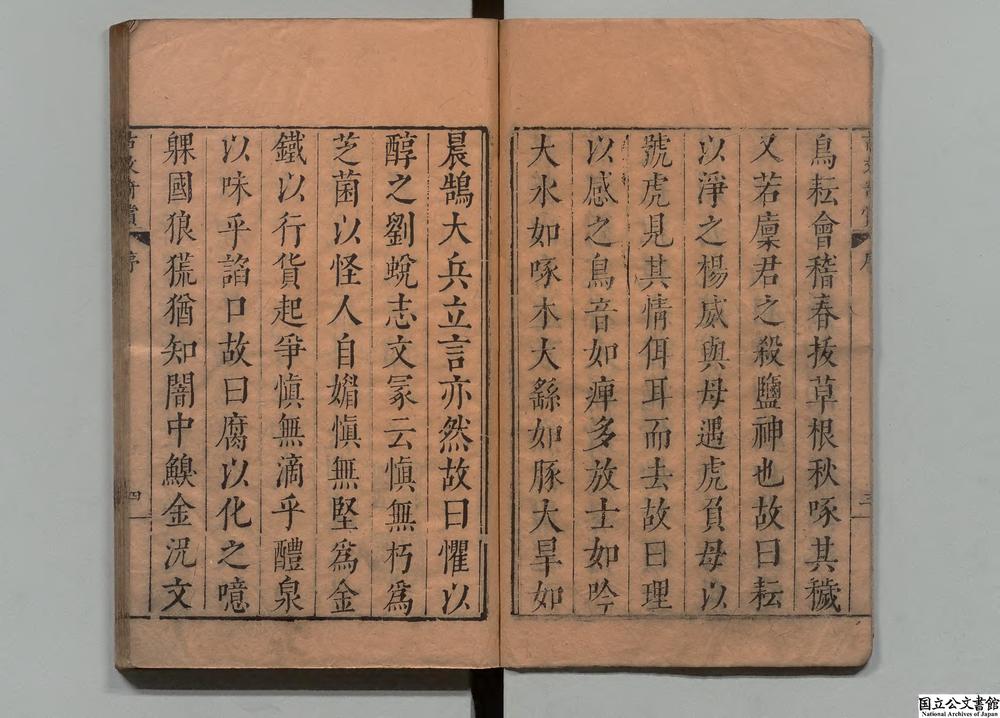 鳥耘會稽春拔草根秋啄其穢
又若廩君之殺鹽神也故曰耘
以淨之楊威與母遇虎負母以
號虎見其情佴耳而去故曰理
以感之鳥音如痺多放士如吟
大水如啄木大繇如豚大旱如
晨鵠大兵立言亦然故曰懼以
醇之劉蛻志文冢云愼無朽爲
芝菌以怪人自媚愼無堅爲金
鐵以行貨起爭愼無滴乎醴泉
以味乎諂口故曰腐以化之噫
躶國狼㡃猶知闇中鼽金況文
序
四
三
国立公文書館
National Archives of Japan